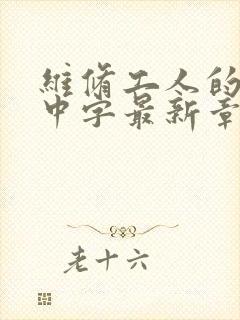 維脩工人的
中字最新章
老十六